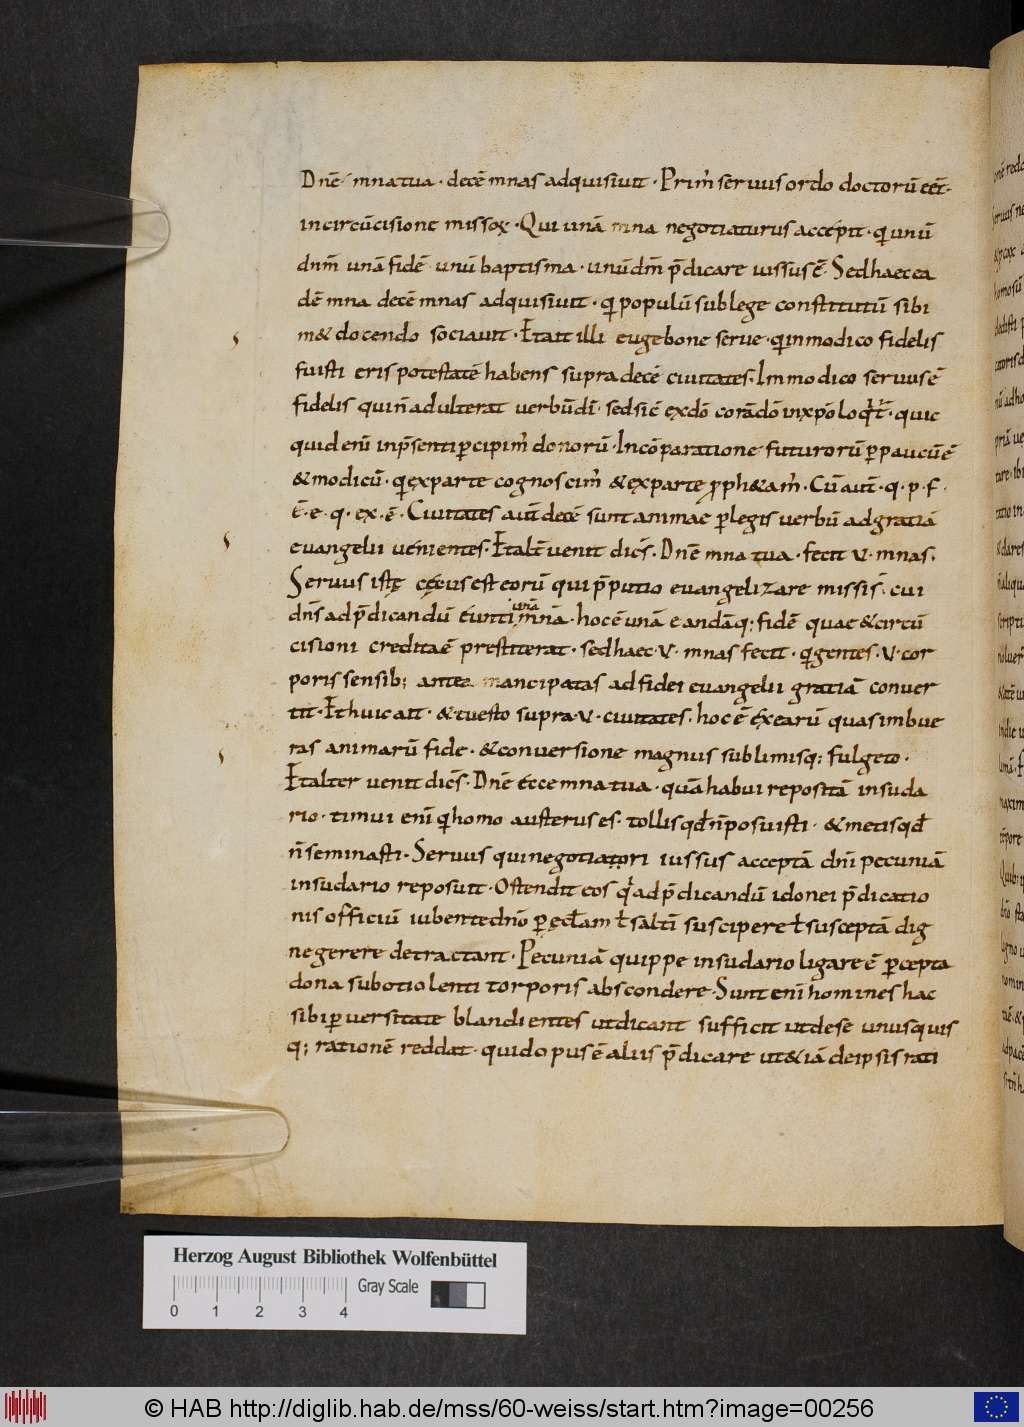 Dnē mna tua · decē mnas adquisiuit · Prim᷒ seruus ordo doctorū eēt ·
incircūcisione missoꝝ · Qui unā mna negotiaturus accepit · qͥ unū
dnm̄ unā fidē unū baptisma · unūdm̄ p̄dicare iussus ē · Sed haec ea
dē mna decē mnas adquisiuit · qͥ populū sub lege constitutū sibi
m& docendo sociauit · Et ait illi euge bone serue · qͥ in modico fidelis
fuisti eris potestatē habens supra decē ciuitates · In modico seruus ē
fidelis qui n̄ adulterat uerbū dī · sed sic̄ ex dō corā dō in xp̄o loqͥt᷒ · quic
quid enī in p̄senti ꝑcipim᷒ donorū · In cōparatione futurorū ꝑpaucū ē
& modicū · qͥ ex parte cognoscim᷒ & ex parte ꝓph&am᷒ · Cū aūt · q · p · f ·
ē · e · q · ex · ē · Ciuitates aūt decē sunt animae ꝑ legis uerbū ad gratiā
euangelii uenientes · Et alt̄ uenit dic̄s · Dnē mna tua · fecit v · mnas ·
Seruus iste cęt᷒us est eorū qui p̄putio euangelizare missis̄ · cui
dn̄s ad p̄dicandū eunti unā mnā · hoc ē unā eandāq; fidē quae & circū
cisioni credita ē prestiterat · sed haec · v · mnas fecit · qͥ gentes · v · cor
poris sensib; antea mancipatas ad fidei euangelii gratiā conuer
tit · Et huic ait · & tu esto supra · v · ciuitates · hoc ē ex earū quas imbue
ras animarū fide · & conuersione magnus sublimisq; fulgeto ·
Et alter uenit dic̄s · Dnē ecce mna tua · quā habui repositā in suda
rio · timui enī qͥ homo austerus es · tollis qđ n̄ posuisti · & metis qđ
n̄ seminasti · Seruus qui negotiatori iussus acceptā dnī pecuniā
in sudario reposuit · Ostendit eos qͥ ad p̄dicandū idonei p̄dicatio
nis officiū iubente dnō ꝑ ęcłam ł saltī suscipere ł susceptā dig
ne gerere detractant · Pecuniā quippe in sudario ligare ē ꝑcepta
dona sub otio lenti torporis abscondere · Sunt enī homines hac
sibi ꝑuersitate blandientes ut dicant sufficit ut de se unusquis
q; rationē reddat · quid opus ē aliis p̄dicare ut & iā de ipsis rati
Herzog August Bibliothek Wolfenbüttel
Gray Scale
0 1 2 3 4
© HAB http://diglib.hab.de/mss/60-weiss/start.htm?image=00256